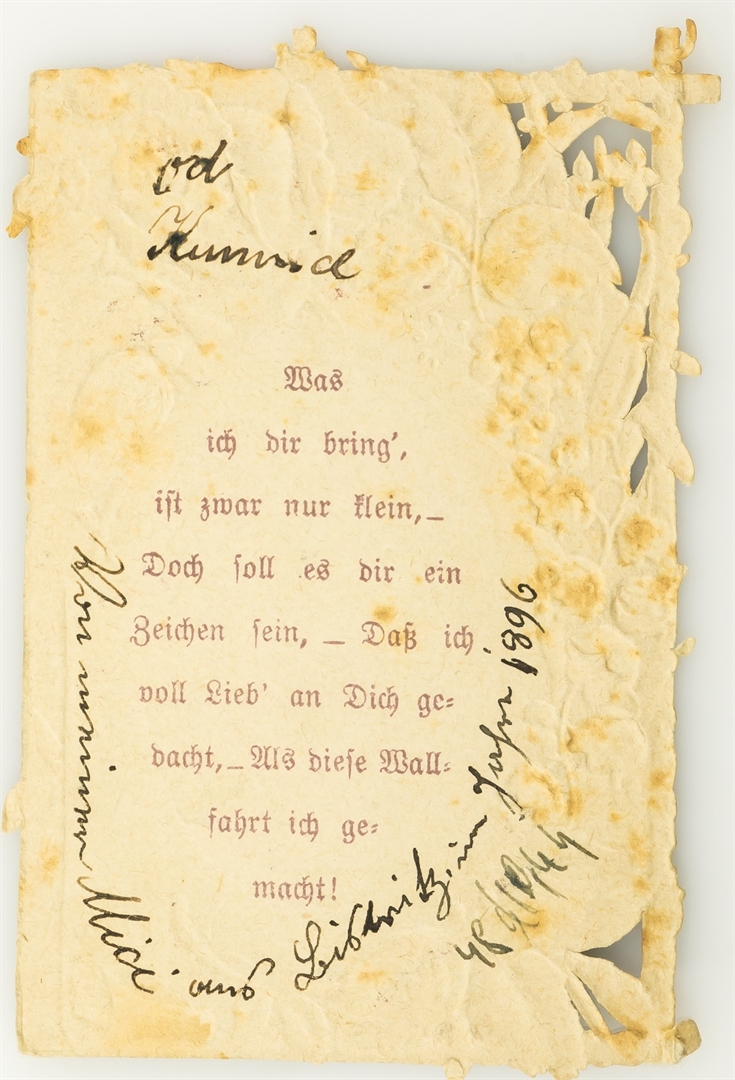 od
Was
ich dir bring',
ist zwar nur klein,_
Doch soll es dir ein
Zeichen sein, _ Daß ich
voll Lieb' an Dich ge=
dacht,_ Als diese Wall=
fahrt ich ge=
macht!
Von meiner Mici
aus im Jahre 1896